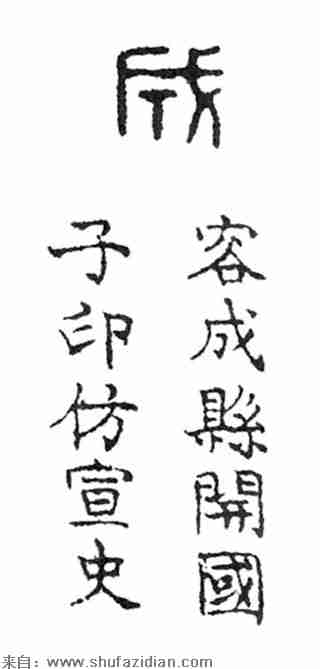 成
容成縣開國
子印仿宣史
来自：www.shufazidian.com